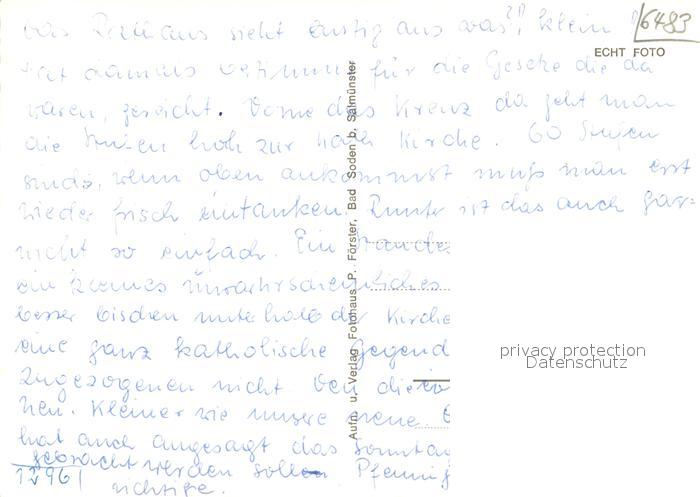 6483
ECHT FOTO
das Rathaus sieht lustig aus was?! klein
hat damals bestimmt für die Gesetze die da
waren, gereicht. Vorne das Kreuz da geht man
die Stufen hoch zur kath Kirche. 60 Stufen
sinds, wenn oben ankommst muß man erst
wieder frisch eintanken. Runter ist das auch gar-
nicht so einfach. Ein
ein kleines unwahrscheinliches
besser bischen unterhalb der Kirche
eine ganz katholische Gegend
Zugezogenen nicht von die
nen. Kleiner wie unsere neue
hat auch angesagt das Sonntag
gebracht werden sollen Pfennig
richtige.
Aufn. u. Verlag Fotohaus P. Förster, Bad Soden b. Salmünster
privacy protection
Datenschutz